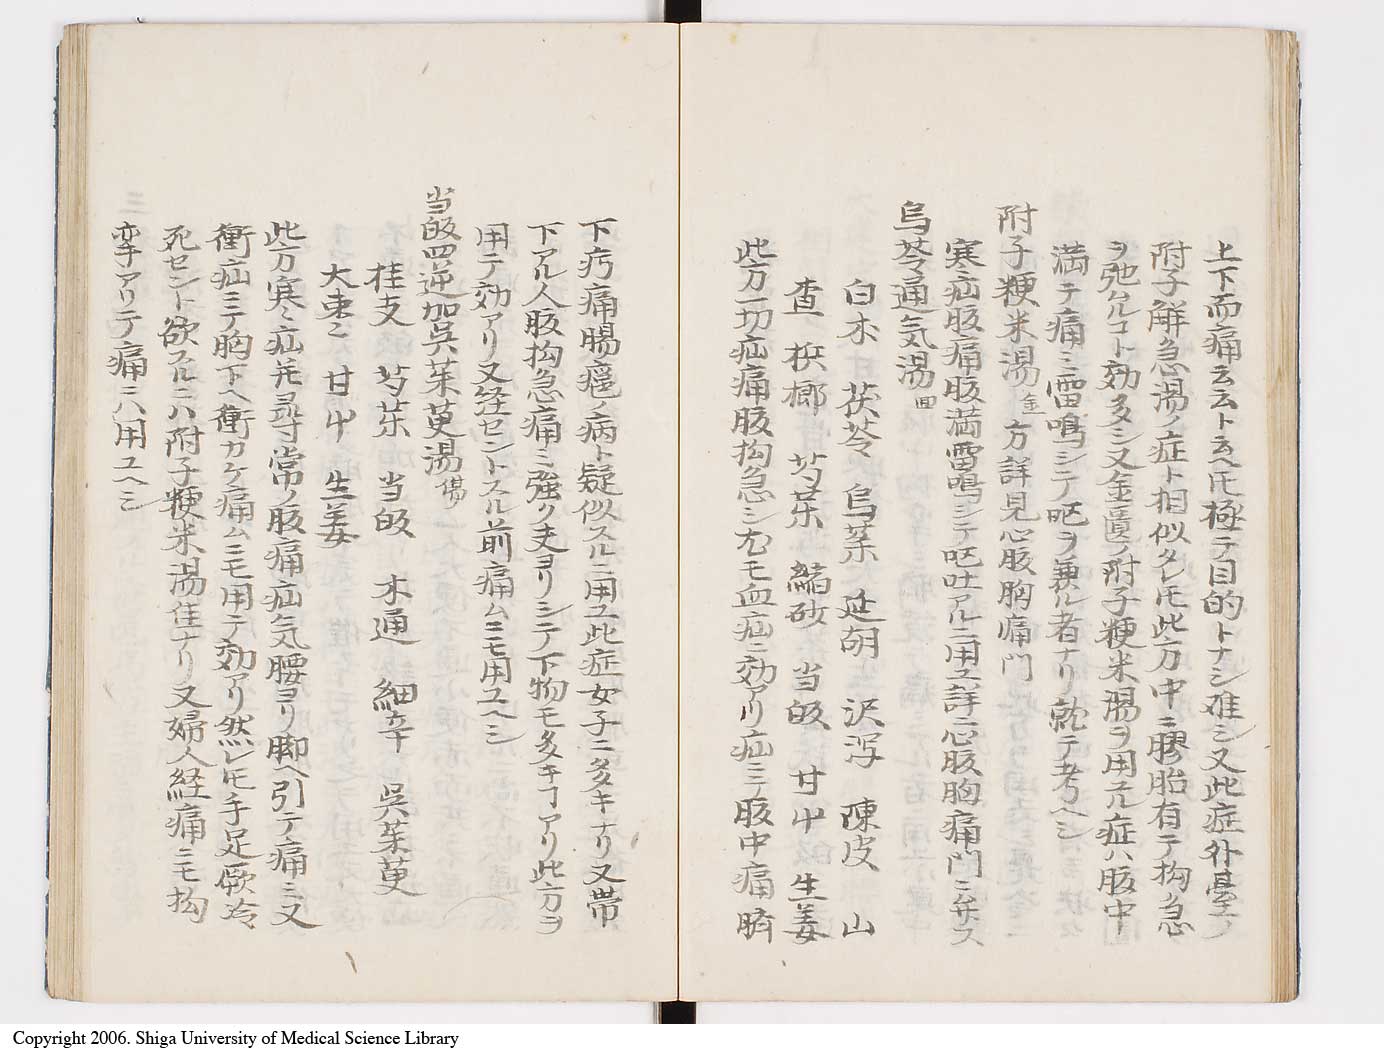 上下而痛云云ト云ヘ𪜈極テ目的トナシ难シ又此症外臺ノ
附子解急湯ノ症ト相似タレ𪜈此方中ニ膠胎有テ拘急
ヲ弛クルコト効多シ又金匱ノ附子粳米湯ヲ用ル症ハ腹中
満テ痛ミ雷鳴シテ呕ヲ兼ル者ナリ就テ考ヘシ
附子粳米湯 金 方詳見心腹胸痛門
寒疝腹痛腹満雷鳴シテ呕吐アルニ用ユ詳心腹胸痛門ニ弁ス
烏苓通気湯 回
白朮 茯苓 烏薬 延胡 沢泻 陳皮 山
査 梹榔 芍薬 縮砂 当皈 甘艸 生姜
此方一切疝痛腹拘急シ尤モ血疝ニ効アリ疝ミテ腹中痛臍
下疞痛腸癰ノ病ト疑似スルニ用ユ此症女子ニ多キナリ又帯
下アル人腹拘急痛ミ強ク夫ヨリシテ下物モ多キヿアリ此方ヲ
用テ効アリ又経セントスル前痛ムニモ用ユヘシ
当皈四逆加呉茱萸湯 傷
桂支 芍薬 当皈 木通 細辛 呉茱萸
大棗 甘艸 生姜
此方寒疝并尋常ノ腹痛疝気腰ヨリ脚ヘ引テ痛ミ又
衝疝ミテ胸下ヘ衝カケ痛ムニモ用テ効アリ然レ𪜈手足厥冷
死セント欲スルニハ附子粳米湯佳ナリ又婦人経痛ニモ拘
攣アリテ痛ニハ用ユヘシ
Copyright 2006. Shiga University of Medical Science Library